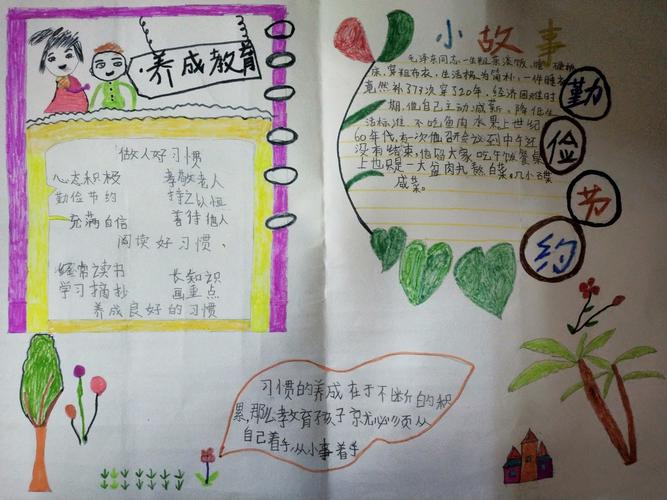 养成教育
做人好习惯
心态积极 孝敬老人
勤俭节约 持之以恒
充满自信 善待他人
阅读好习惯、
经常读书 长知识
学习摘抄 画重点
养成良好的习惯
小故事
毛泽东同志一生粗茶淡饭、睡硬板
床,穿粗布衣,生活极为简朴,一件睡衣
竟然补了73次,穿了20年。经济困难时
期,他自己主动减薪、降低生
活标准,不吃鱼肉水果。上世纪
60年代,有一次他召开会议到中午还
没有结束,他留大家吃午饭,餐桌
上也只是一大盆肉丸熬白菜。几小碟
咸菜。
勤
俭
节
约
习惯的养成在于不断的积
累,那么教育孩子就必须从
自己着手,从小事着手